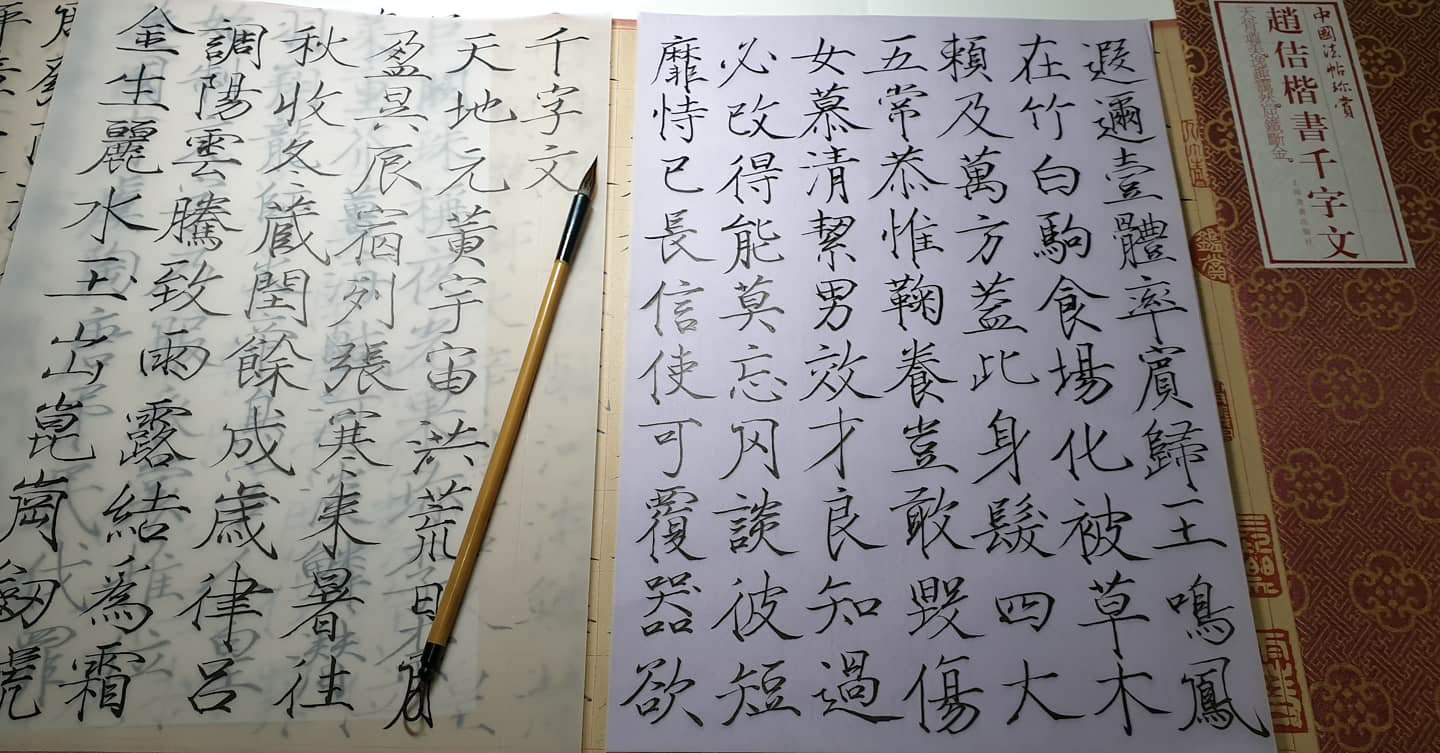 中國法帖珍賞
趙佶楷書千字文
遐邇壹體率賓歸王鳴鳳
在竹白駒食場化被草木
賴及萬方蓋此身髮四大
五常恭惟鞠養豈敢毀傷
女慕清絜男效才良知過
必改得能莫忘罔談彼短
靡恃己長信使可覆器欲
千字文
天地元黃宇宙洪荒日月
盈昃辰宿列張寒來暑往
秋收冬蔵閏餘成歲律呂
調陽雲騰致雨露結為霜
金生麗水玉山崑崗劒號